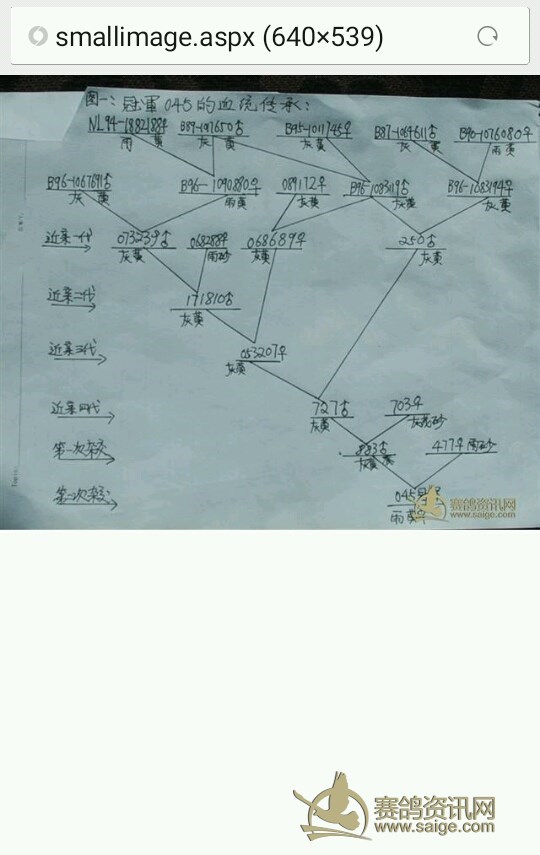 smallimage.aspx (640×539)
图一：冠军045的血统传承：
NL94-1882188♀ B89-197650♂ B95-1011745♀ B87-1064611♂ B90-1076080♀
雨黄 灰黄 灰黄 灰黄 雨黄
B96-1067691♂ B96-1090880♀ 089172♀ B96-1083119♂ B96-1083194♀
灰黄 雨黄 灰黄 灰黄 灰黄
近亲一代 073239♂ 068288♀ 068689♀ 250♂
灰黄 雨砂 灰黄 灰黄
近亲二代 171810♂
灰黄
近亲三代 053207♀
灰黄
近亲四代 727♂ 703♀
灰黄 灰花砂
第一次杂交 883♂ 477♀ 雨砂
灰黄
第二次杂交 045
雨黄
赛鸽资讯网
www.saige.com
赛鸽资讯网
www.saige.com